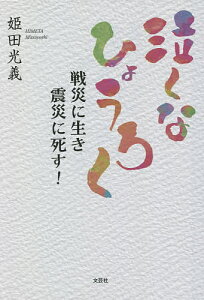 泣くな
ひょうろく
戦災に生き
震災に死す!
HIMETA Mitsuyoshi
姫田光義
文芸社